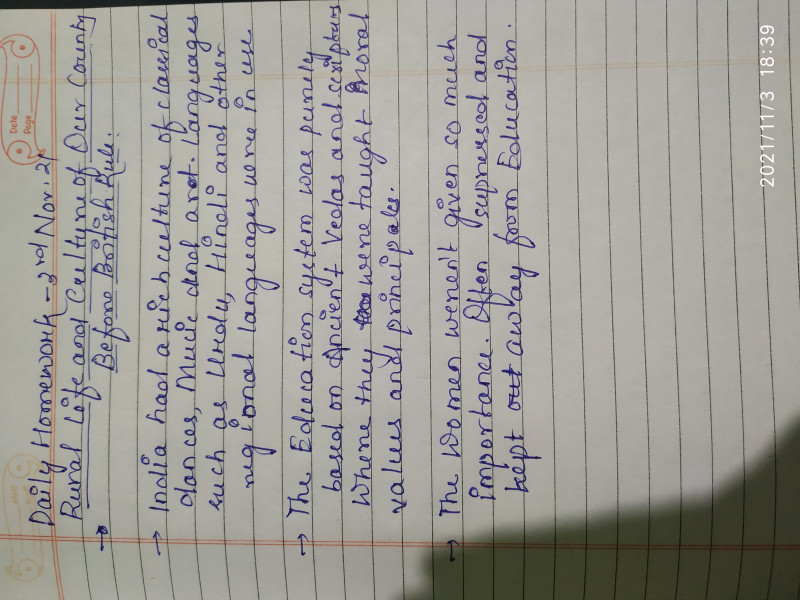 Daily Homework - 3rd Nov. 21
Rural life and Culture of Our County
Before British Rule.
→ India had a rich culture of classical
dances, Music and art. Languages
such as Urdu, Hindi and other
regional languages were in use
→ The Education system was purely
based on Ancient Vedas and scriptures
Where they were taught moral
values and principales.
→ The Women weren't given so much
importance. Often supressed and
kept out away from Education.
Date
Page
2021/11/3 18:39